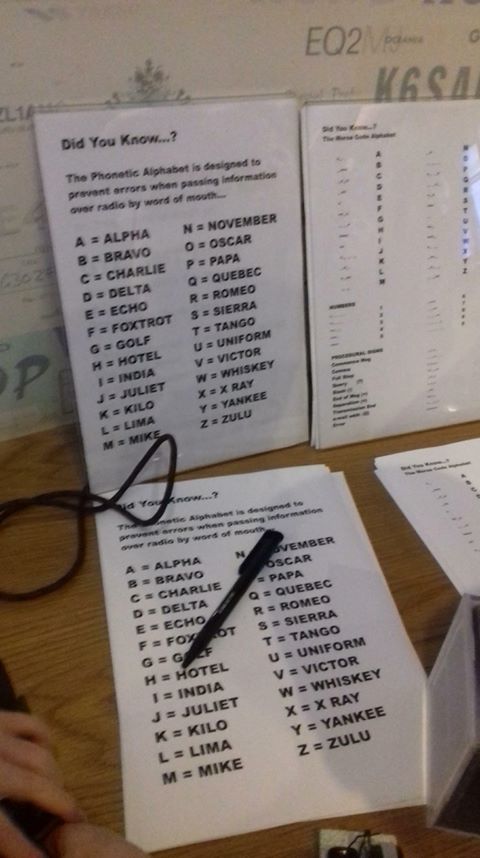 EQ2M
OCEANIA
K6SA
ZL1A
Did You Know...?
The Phonetic Alphabet is designed to
prevent errors when passing information
over radio by word of mouth...
A = ALPHA
B = BRAVO
C = CHARLIE
D = DELTA
E = ECHO
F = FOXTROT
G = GOLF
H = HOTEL
I = INDIA
J = JULIET
K = KILO
L = LIMA
M = MIKE
N = NOVEMBER
O = OSCAR
P = PAPA
Q = QUEBEC
R = ROMEO
S = SIERRA
T = TANGO
U = UNIFORM
V = VICTOR
W = WHISKEY
X = X RAY
Y = YANKEE
Z = ZULU
Did You Know...?
The Morse Code Alphabet
A
B
C
D
E
F
G
H
I
J
K
L
M
N
O
P
Q
R
S
T
U
V
W
X
Y
Z
NUMBERS
PROCEDURAL SIGNS
Commence Msg
Comma
Full Stop
Query
End of Msg
Separation
Transmission End
Error
Did You Know...?
The Phonetic Alphabet is designed to
prevent errors when passing information
over radio by word of mouth...
A = ALPHA
B = BRAVO
C = CHARLIE
D = DELTA
E = ECHO
F = FOXTROT
G = GOLF
H = HOTEL
I = INDIA
J = JULIET
K = KILO
L = LIMA
M = MIKE
N = NOVEMBER
OSCAR
= PAPA
Q = QUEBEC
R = ROMEO
S = SIERRA
T = TANGO
U = UNIFORM
V = VICTOR
W = WHISKEY
X = X RAY
Y = YANKEE
Z = ZULU
Did You Know...?
The Morse Code Alphabet